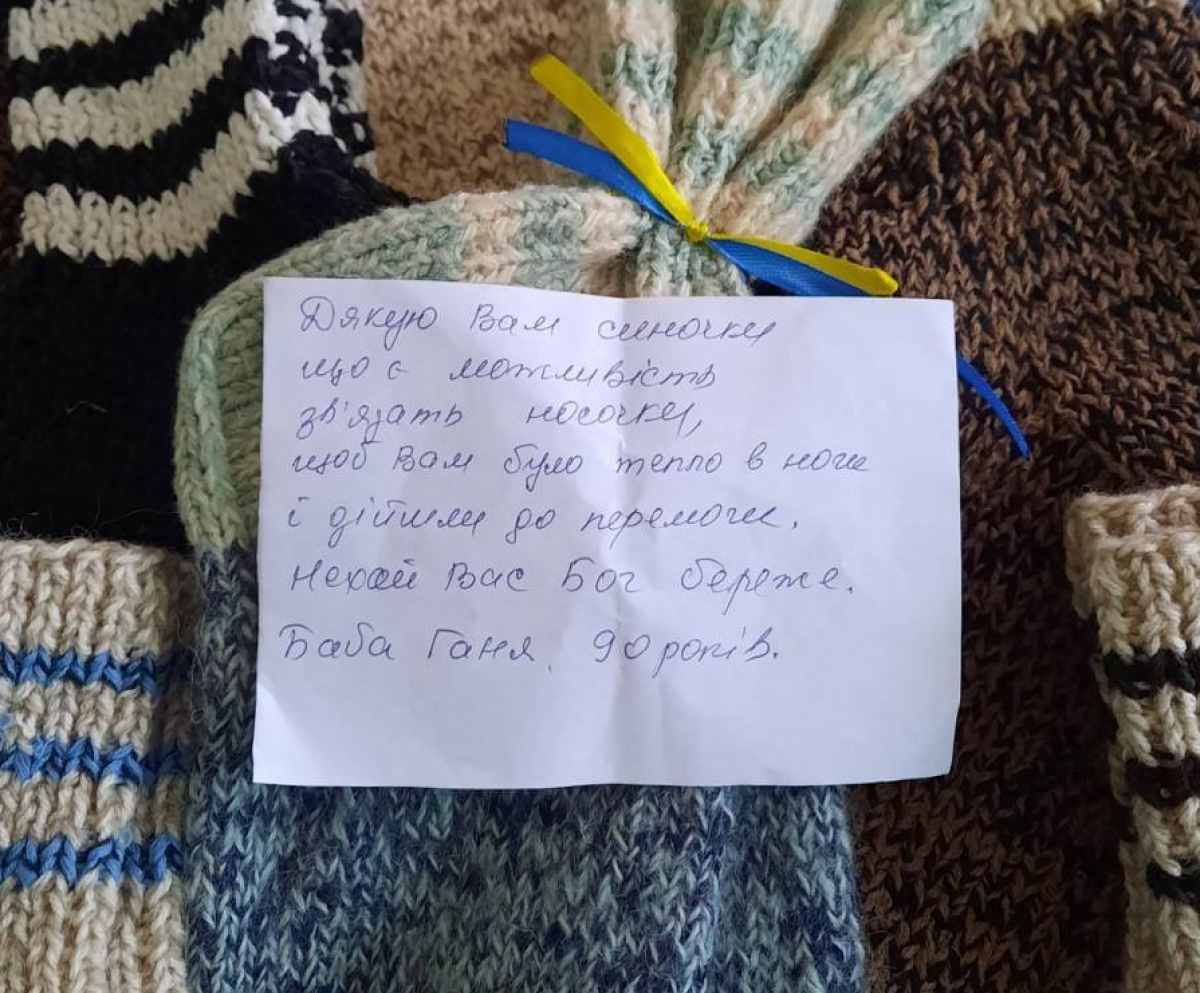 Дякую Вам синочки
що є можливість
зв'язать носочки,
щоб Вам було тепло в ноги
і дійшли до перемоги.
Нехай Вас Бог береже.
Баба Ганя, 90 років.